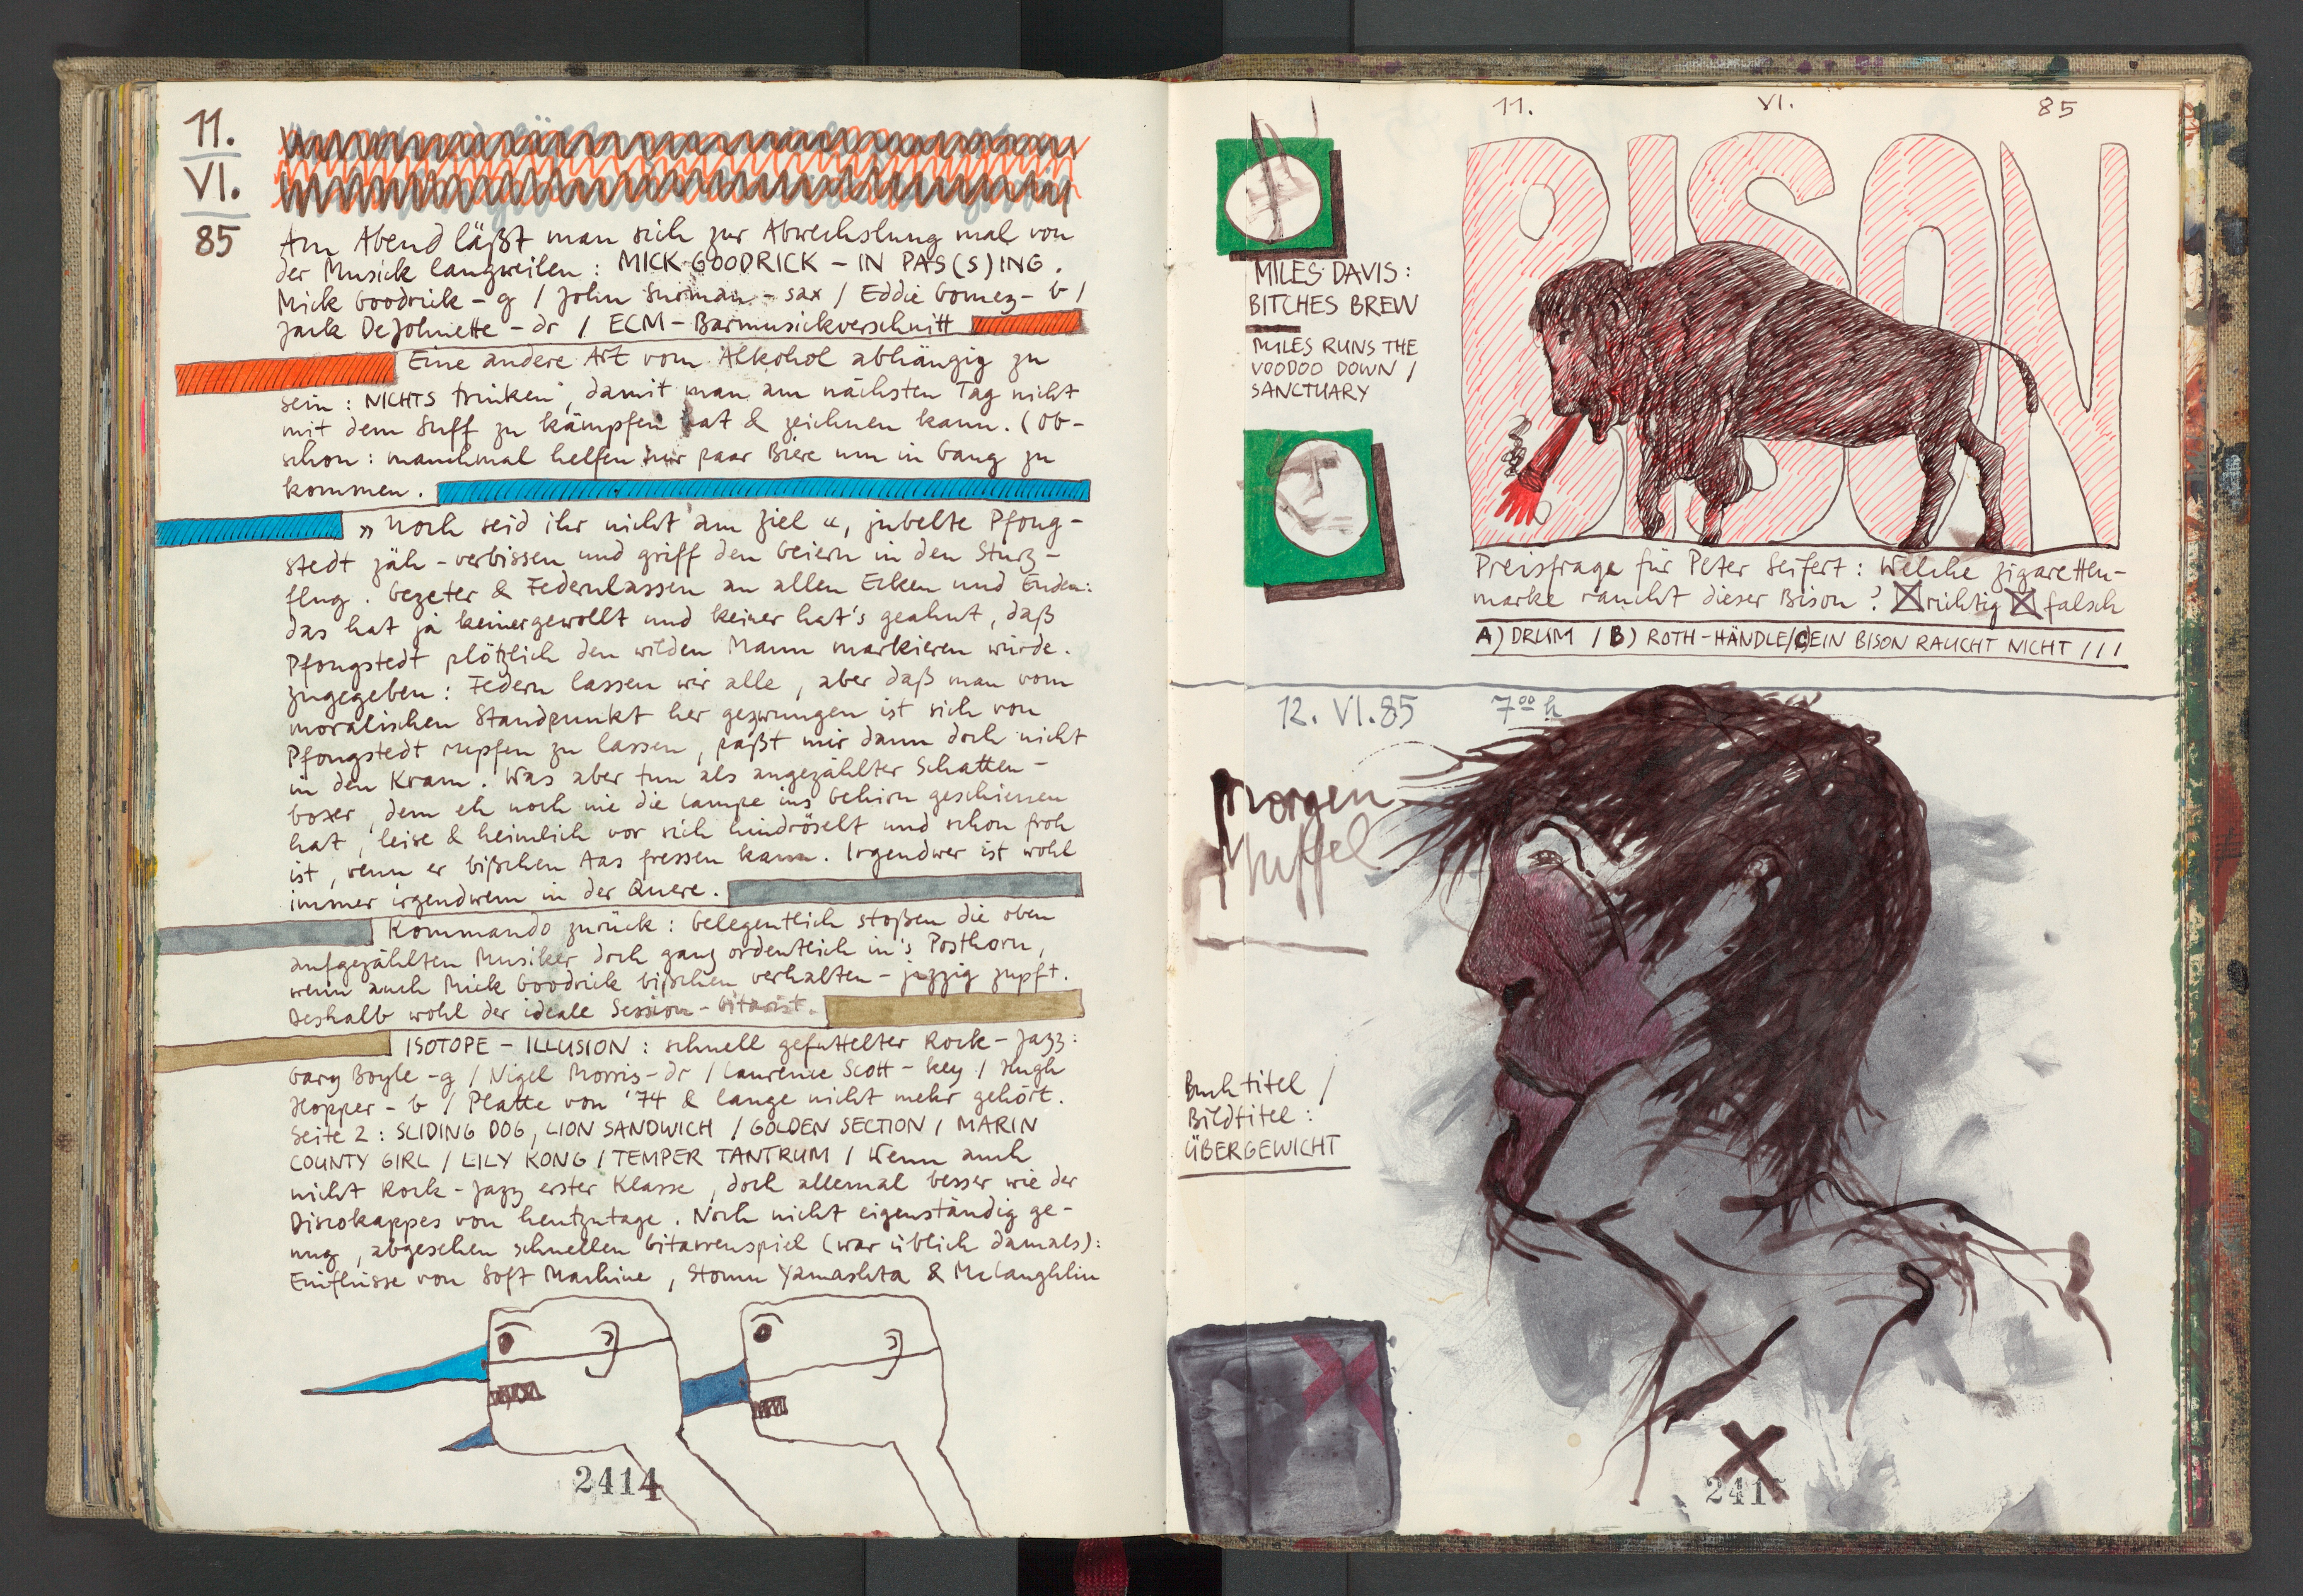 11.
VI.
85
Am Abend läßt man sich zur Abwechslung mal von
der Musick langweilen : MICK GOODRICK – IN PAS(S)ING .
Mick Goodrick – g / John Surman – sax / Eddie Gomez – b /
Jack DeJohnette – dr / ECM – Barmusickverschnitt
Eine andere Art vom Alkohol abhängig zu
sein : NICHTS trinken , damit man am nächsten Tag nicht
mit dem Suff zu kämpfen hat & zeichnen kann . (Ob-
schon : manchmal helfen nur paar Biere um in Gang zu
kommen .
» Noch seid ihr nicht am Ziel « , jubelte Pfong-
stedt jäh – verbissen und griff den Geiern in den Sturz-
flug . Gezeter & Federnlassen an allen Ecken und Enden :
das hat ja keiner gewollt und keiner hat's geahnt , daß
Pfongstedt plötzlich den wilden Mann markieren würde .
Zugegeben : Federn lassen wir alle , aber daß man vom
moralischen Standpunkt her gezwungen ist sich von
Pfongstedt rupfen zu lassen , paßt mir dann doch nicht
in den Kram . Was aber tun als angezählter Schatten-
boxer , dem eh noch nie die Lampe ins Gehirn geschienen
hat , leise & heimlich vor sich hindröselt und schon froh
ist , wenn er bißchen Aas fressen kann . Irgendwer ist wohl
immer irgendwem in der Quere .
Kommando zurück : Gelegentlich stoßen die oben
aufgezählten Musiker doch ganz ordentlich in's Posthorn ,
wenn auch Mick Goodrick bißchen verhalten – jazzig zupft .
Deshalb wohl der ideale Session – Gitarist .
ISOTOPE – ILLUSION : schnell gefuttelter Rock – Jazz :
Gary Boyle – g / Nigel Morris – dr / Laurence Scott – key / Hugh
Hopper – b / Platte von '74 & lange nicht mehr gehört .
Seite 2 : SLIDING DOG , LION SANDWICH / GOLDEN SECTION / MARIN
COUNTY GIRL / LILY KONG / TEMPER TANTRUM / Wenn auch
nicht Rock – Jazz erster Klasse , doch allemal besser wie der
Discokappes von heutzutage . Noch nicht eigenständig ge-
nug , abgesehen schnellen Gitarrenspiel (war üblich damals) :
Einflüsse von Soft Machine , Stomu Yamashta & McLaughlin
2414
11. VI. 85
BISON
MILES DAVIS :
BITCHES BREW
MILES RUNS THE
VOODOO DOWN /
SANCTUARY
Preisfrage für Peter Seifert : Welche Zigaretten-
marke raucht dieser Bison ? richtig falsch
A) DRUM / B) ROTH-HÄNDLE / C) EIN BISON RAUCHT NICHT / / /
12. VI. 85 7 00 h
Morgen
Muffel
Buchtitel /
Bildtitel :
ÜBERGEWICHT
2415